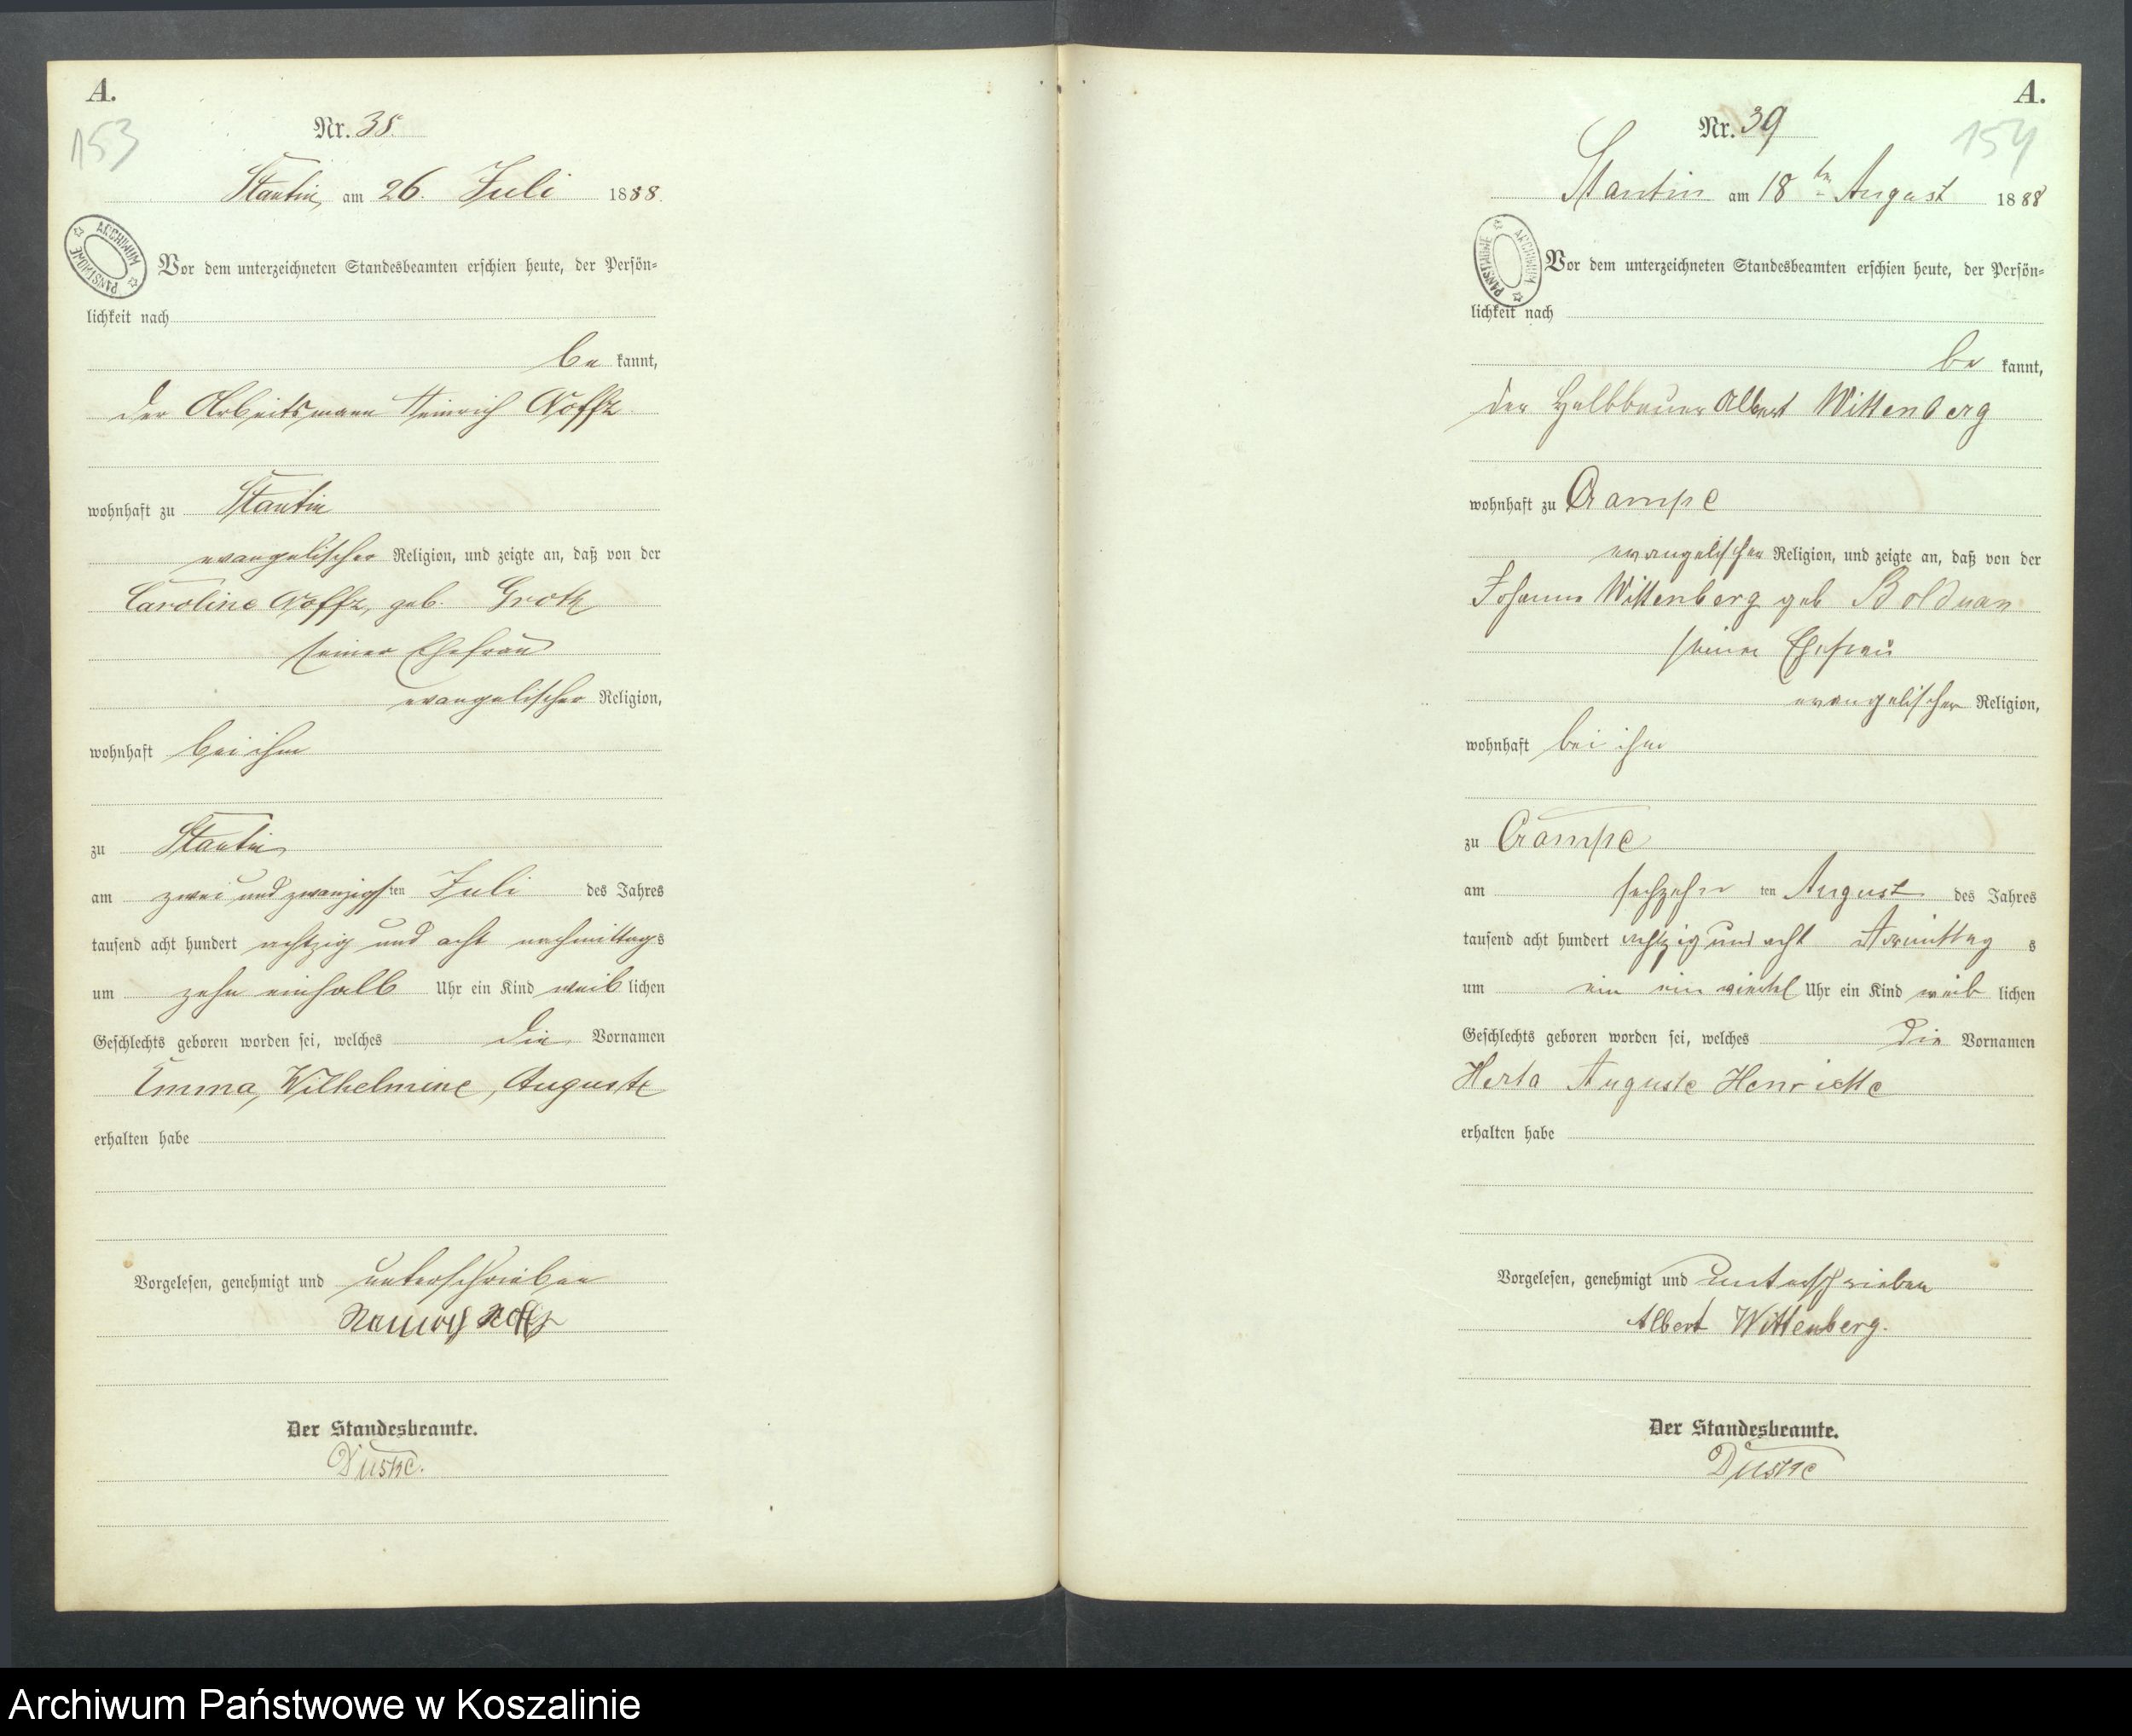 A.
153
Nr. 38.
Stantin, am 26. Juli 1888.
ARCHIWUM PAŃSTWOWE
Vor dem unterzeichneten Standesbeamten erschien heute, der Persön=
lichkeit nach
be kannt,
der Arbeitsmann Heinrich Noffz
wohnhaft zu Stantin
evangelischer Religion, und zeigte an, daß von der
Caroline Noffz, geb. Groth
seiner Ehefrau
evangelischer Religion,
wohnhaft bei ihm
zu Stantin
am zwei und zwanzigsten Juli des Jahres
tausend acht hundert achtzig und acht nachmittags
um zehn einhalb Uhr ein Kind weiblichen
Geschlechts geboren worden sei, welches die Vornamen
Emma, Wilhelmine, Auguste
erhalten habe
Vorgelesen, genehmigt und unterschrieben
Heinrich Noffz
Der Standesbeamte.
Duske.
A.
154
Nr. 39
Stantin am 18ten August 1888
ARCHIWUM PAŃSTWOWE
Vor dem unterzeichneten Standesbeamten erschien heute, der Persön=
lichkeit nach
be kannt,
der Halbbauer Albert Wittenberg
wohnhaft zu Crampe
evangelischer Religion, und zeigte an, daß von der
Johanne Wittenberg geb Bolduan
seiner Ehefrau
evangelischer Religion,
wohnhaft bei ihm
zu Crampe
am sechzehnten August des Jahres
tausend acht hundert achtzig und acht Vormittags
um ein ein viertel Uhr ein Kind weiblichen
Geschlechts geboren worden sei, welches die Vornamen
Herta Auguste Henriette
erhalten habe
Vorgelesen, genehmigt und unterschrieben
Albert Wittenberg.
Der Standesbeamte.
Duske
Archiwum Państwowe w Koszalinie